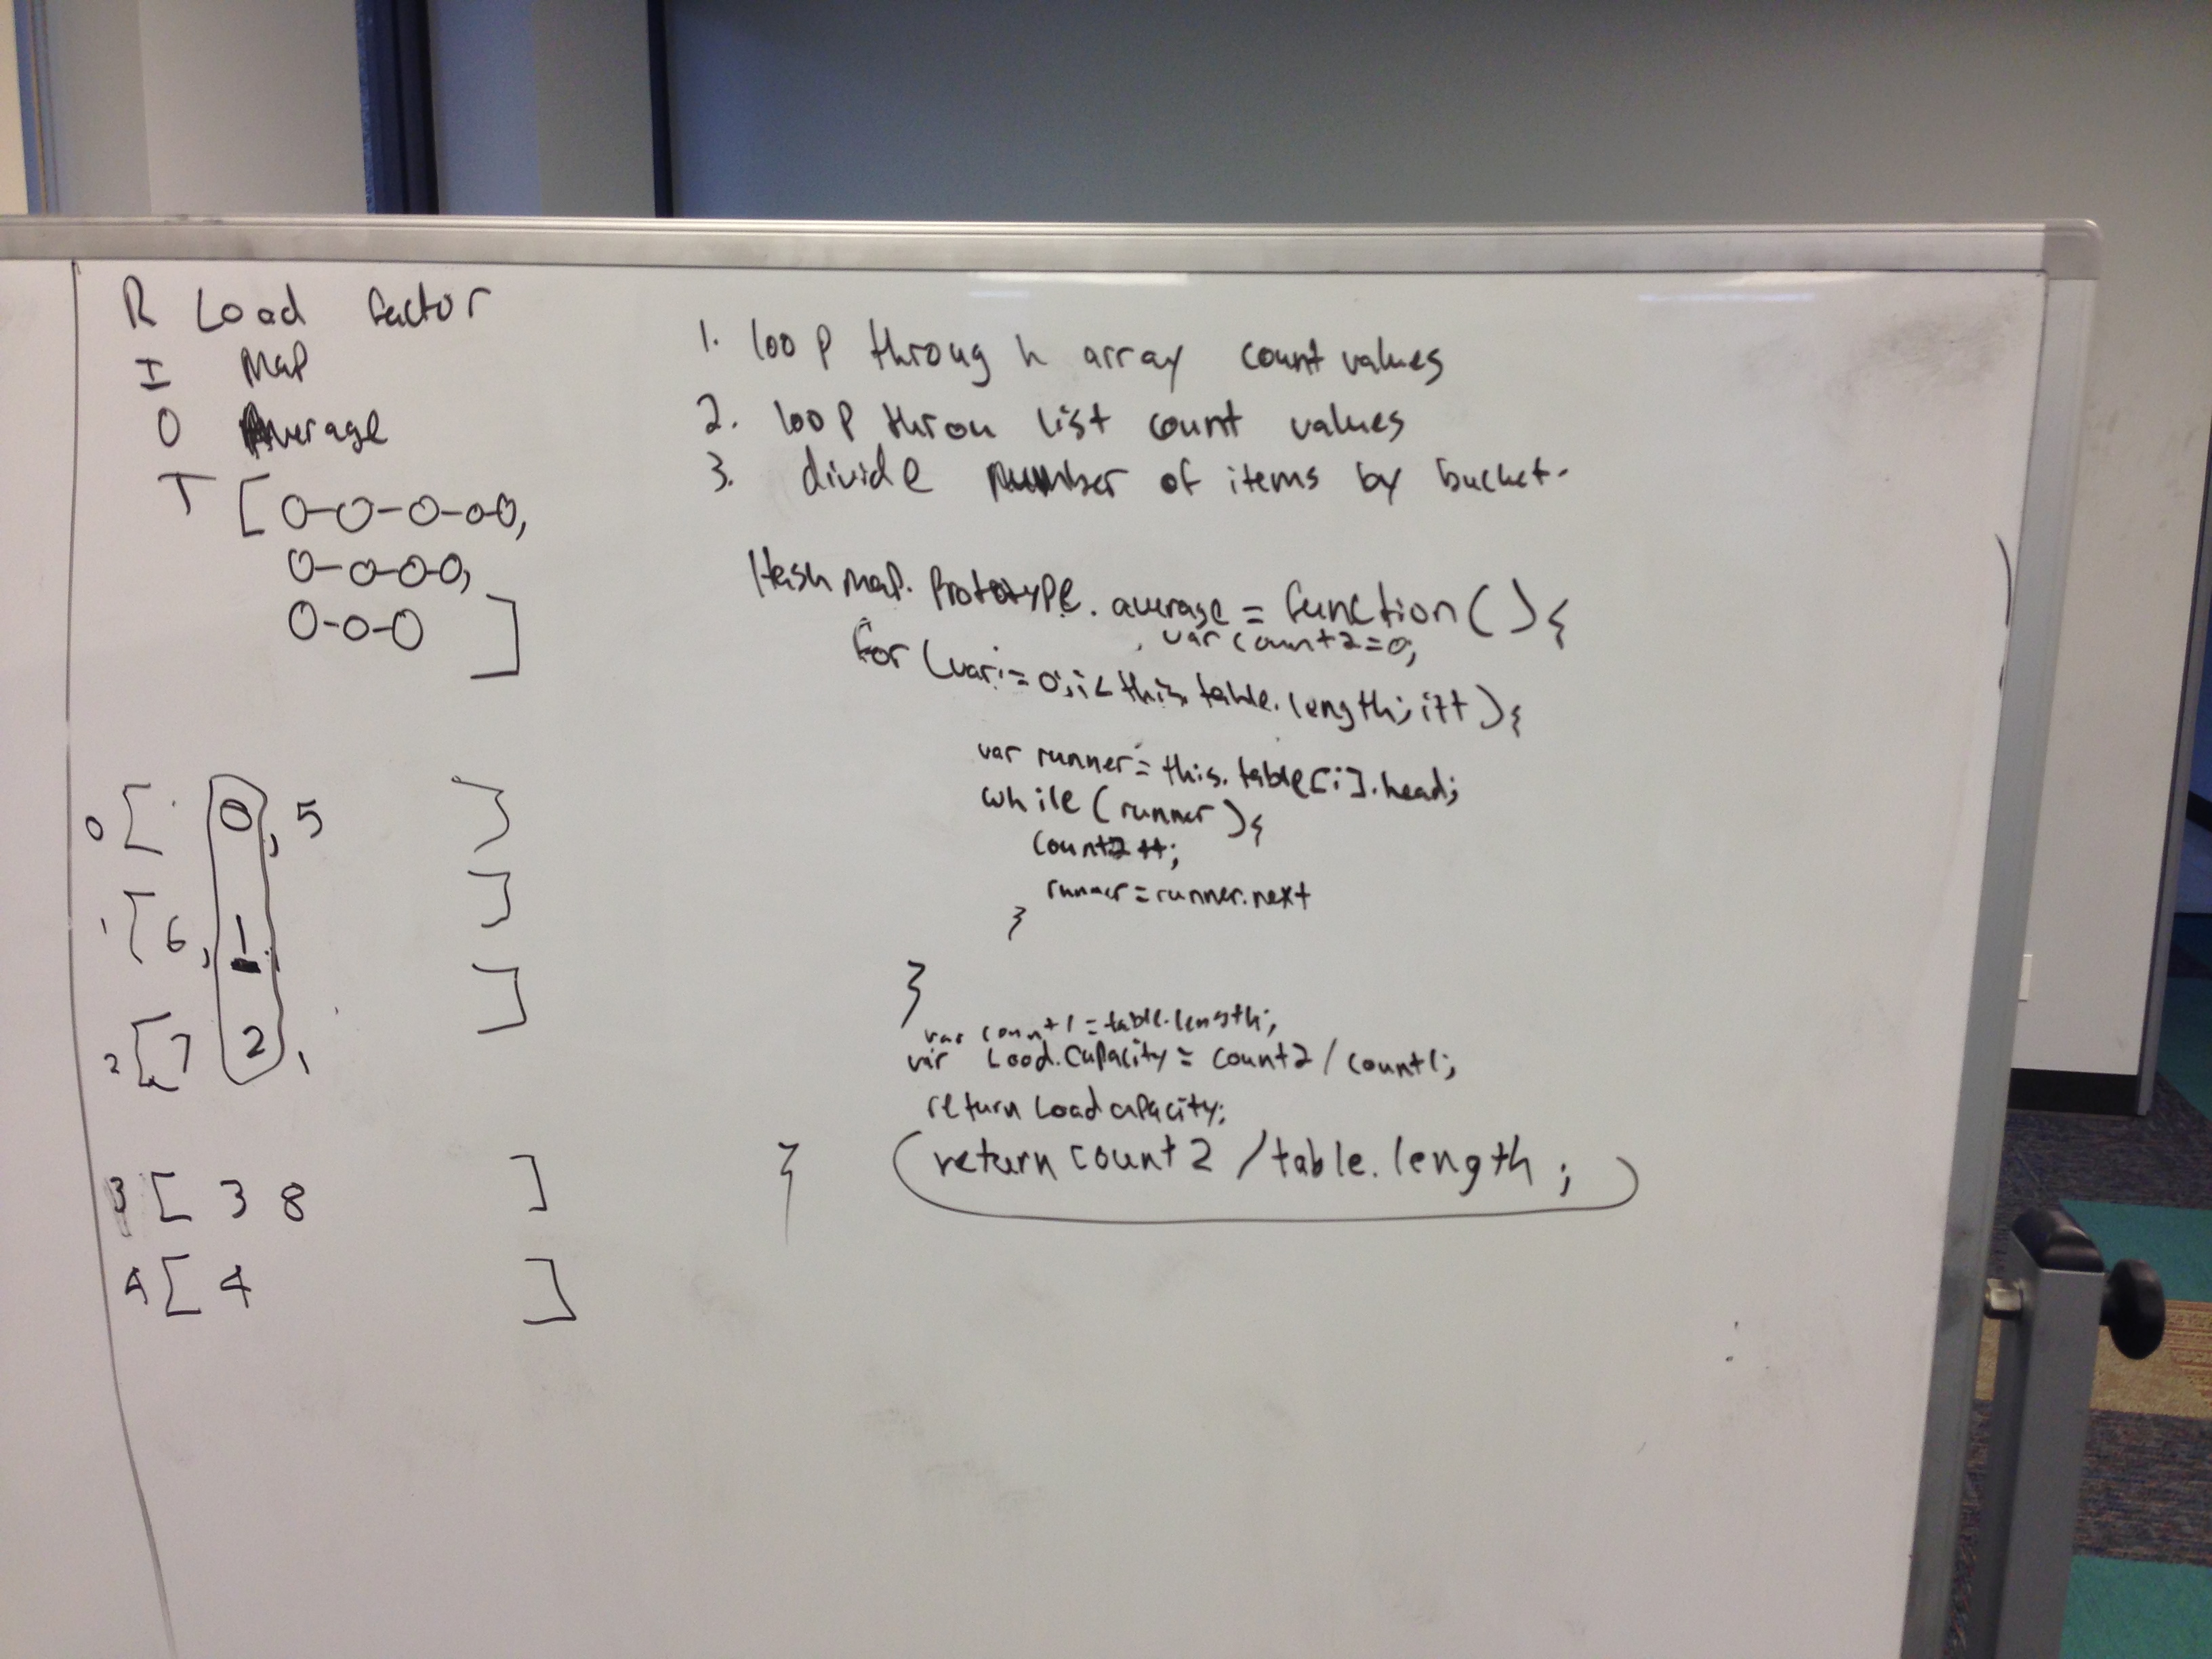 R Load factor
I Map
O Average
T [O-O-O-O-O,
O-O-O-O,
O-O-O ]
0 [ 0, 5 ]
1 [ 6, 1 ]
2 [ 7 2, ]
3 [ 3 8 ]
4 [ 4 ]
1. loop through array count values
2. loop throu list count values
3. divide number of items by bucket.
Hash map. Prototype. average = function() {
var count2=0;
for (var i=0; i< this. table. length; i++) {
var runner = this. table[i].head;
while (runner) {
count2 ++;
runner = runner.next
}
}
var count1 = table.length;
var Load.Capacity = count2 / count1;
return Load capacity;
return count2 / table. length ;
}